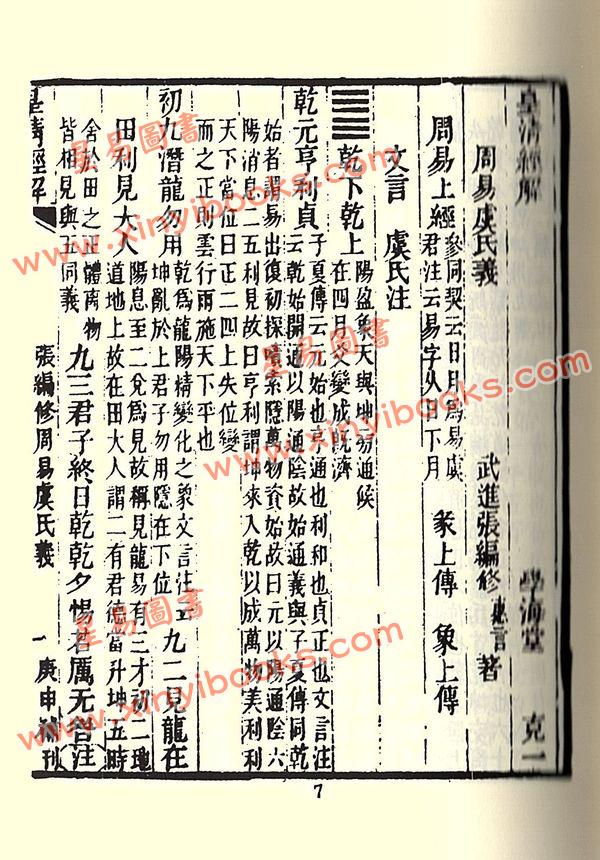 皇清經解 學海堂
周易虞氏義 武進張編修惠言著
周易上經 參同契云日月爲易虞
君注云易字从日下月 彖上傳 象上傳
文言 虞氏注
䷀ 乾下乾上 陽盈象天與坤易通候
在四月爻變成既濟
乾元亨利貞 子夏傳云元始也亨通也利和也貞正也文言注
云乾始開通以陽通陰故始通義與子夏傳同乾
始者謂易出復初探賾索隱萬物資始故曰元以陽通陰六
陽消息二五利見故曰亨利謂坤來入乾以成萬物美利利
天下當位曰正二四上失位變
而之正則雲行雨施天下平也
初九潛龍勿用 乾爲龍陽精變化之象文言注云
坤亂於上君子勿用隱在下位 九二見龍在
田利見大人 陽息至二兌爲見故稱見龍易有三才初二地
道地上故在田大人謂二有君德當升坤五時
舍於田之正體离物
皆相見與五同義 九三君子終日乾乾夕惕若厲无咎注
皇清經解 張編修周易虞氏義 一 庚申補刊
7
星易圖書
www.xinyibooks.com
星易圖書
www.xinyibooks.com
星易圖書
www.xinyibooks.com
星易圖書
www.xinyibooks.com
星易圖書
www.xinyibooks.com